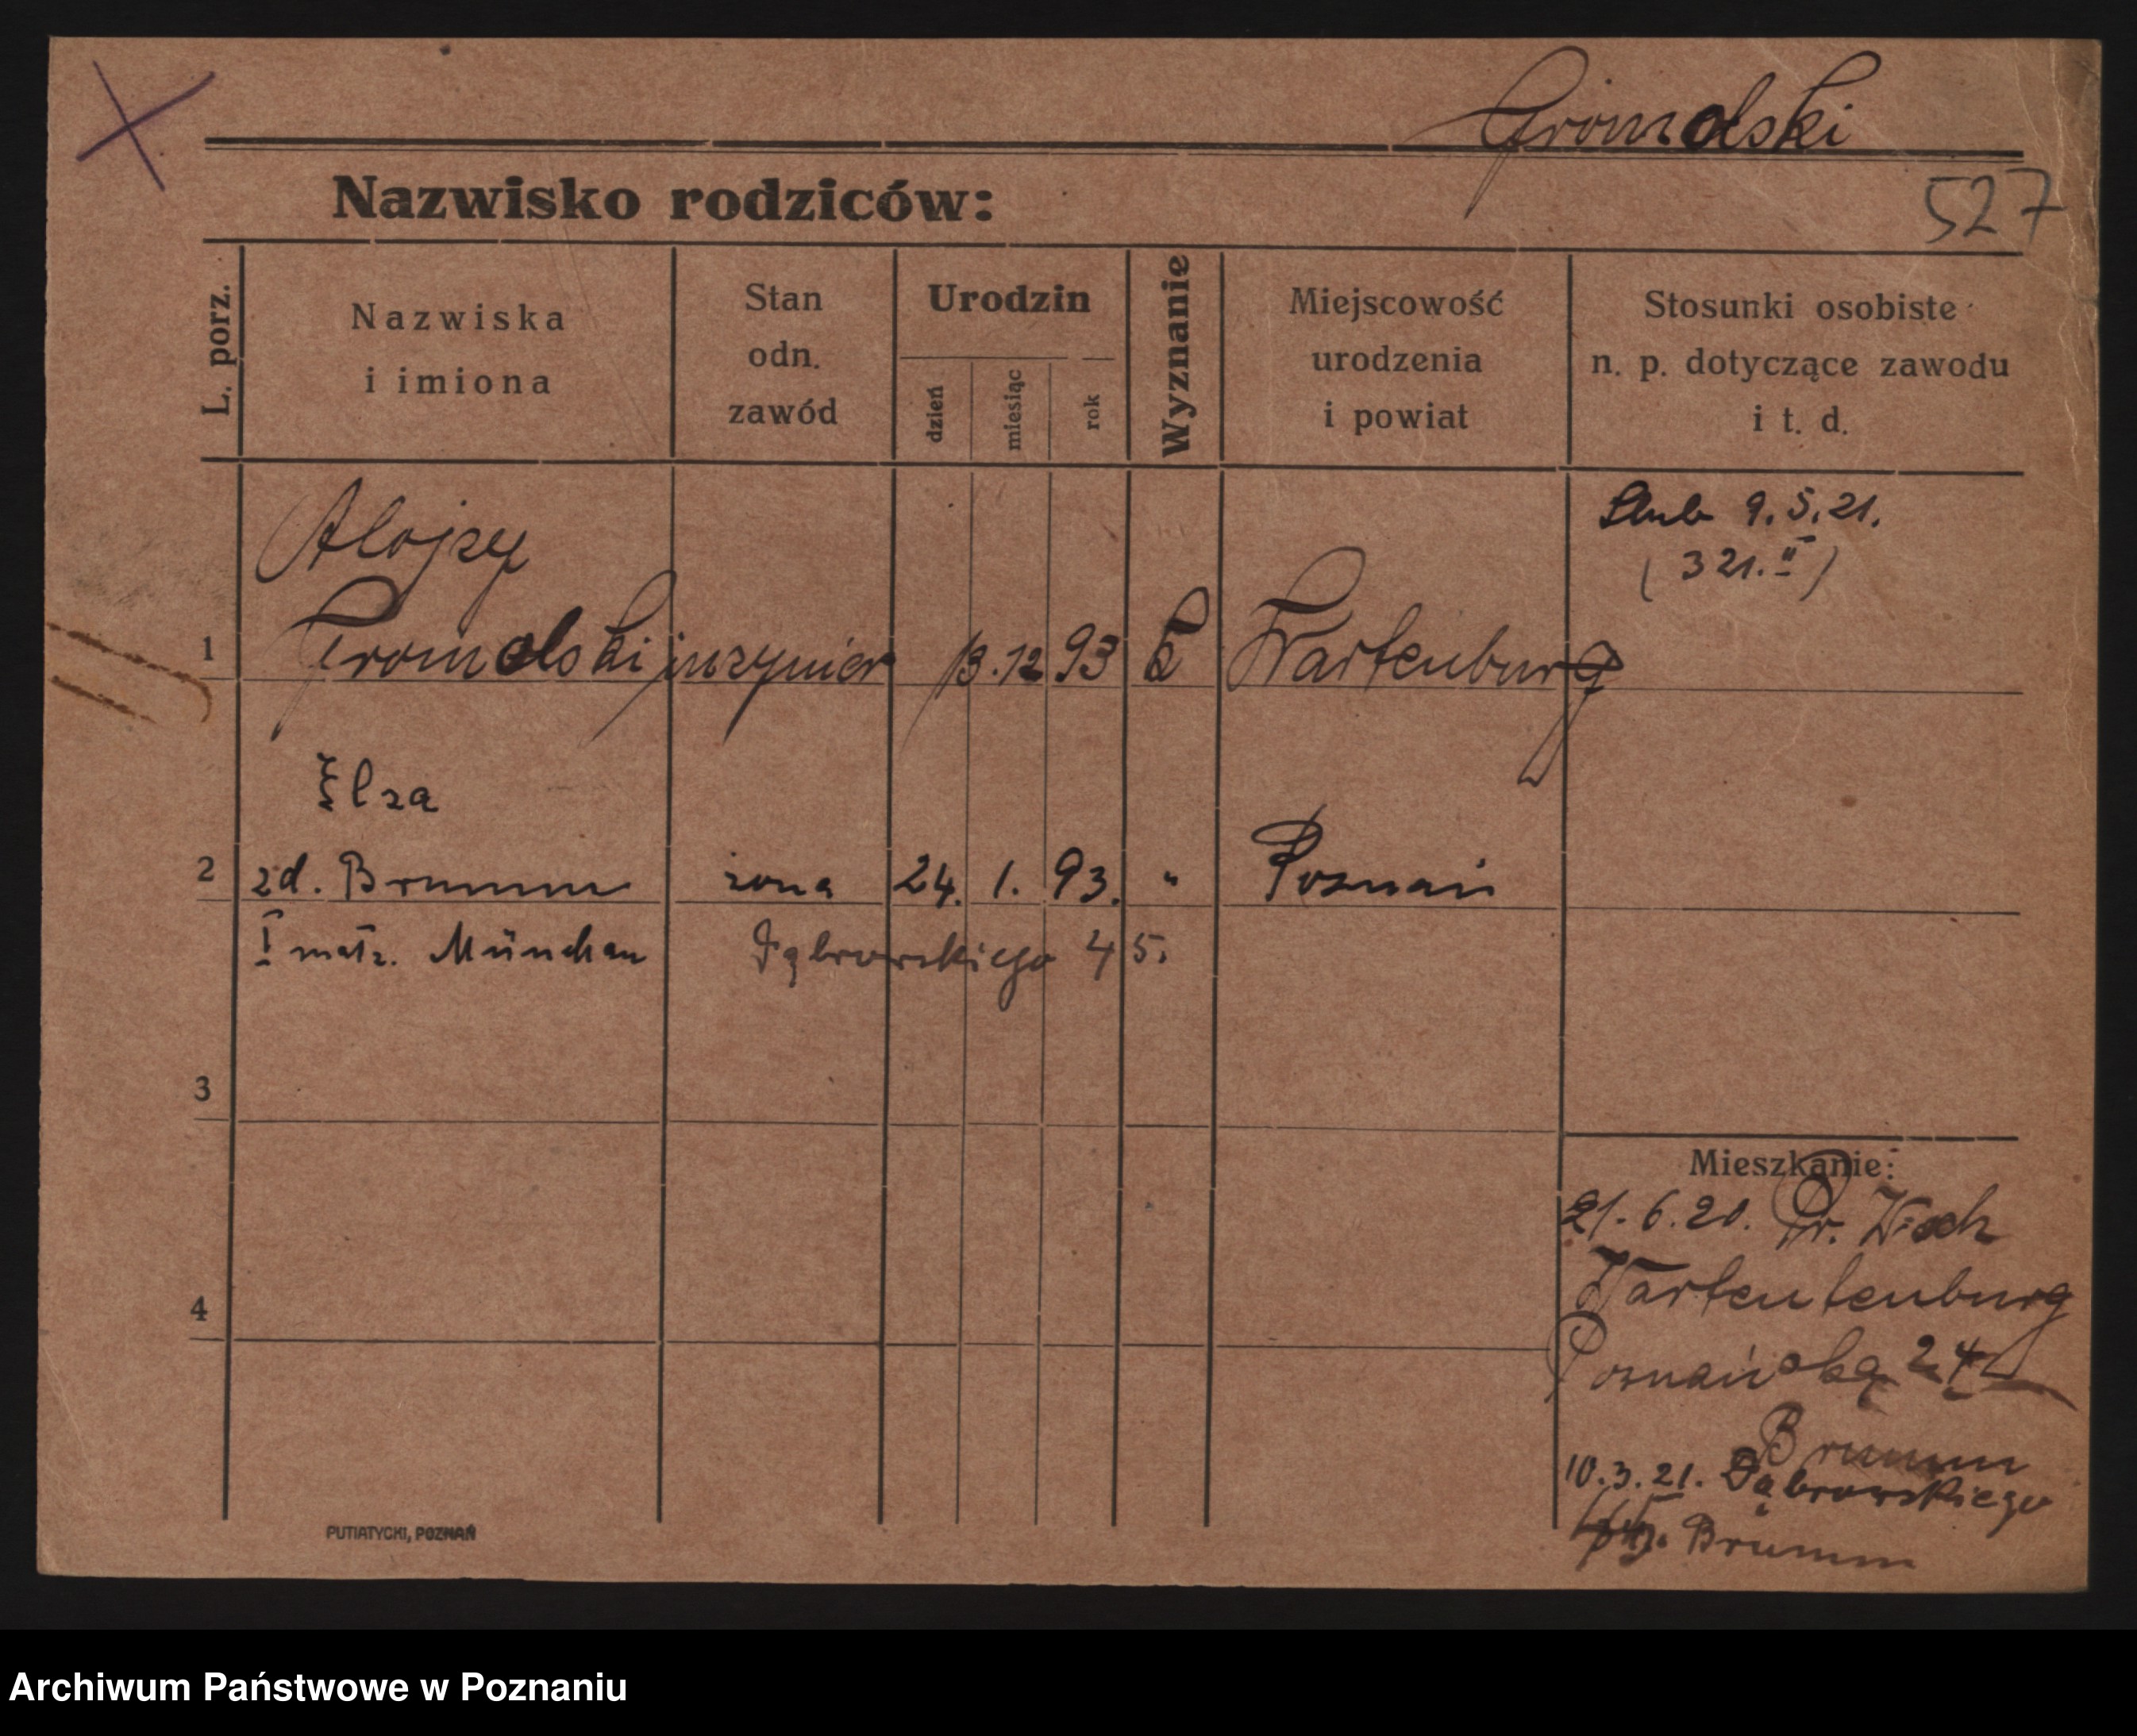 Gromolski
527
Nazwisko rodziców:
L. porz.
Nazwiska
i imiona
Stan
odn.
zawód
Urodzin
dzień
miesiąc
rok
Wyznanie
Miejscowość
urodzenia
i powiat
Stosunki osobiste
n. p. dotyczące zawodu
i t. d.
Ślub 9.5.21.
(321.II)
Alojzy
1 Gromolski inżynier 13.12 93 Wartenburg
Elza
2 zd. Brumm żona 24. 1. 93. " Poznań
I małż. München Dąbrowskiego 45.
3
4
Mieszkanie:
21.6.20.
Wartentenburg
Poznańska 24
Brumm
10.3.21. Dąbrowskiego
Brumm
PUTIATYCKI, POZNAŃ
Archiwum Państwowe w Poznaniu